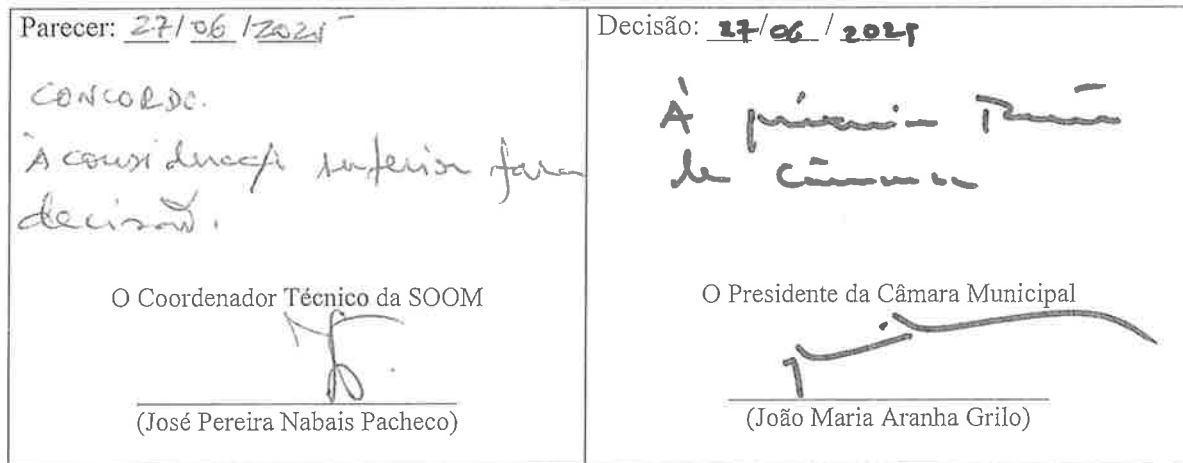 Parecer: 27/06/2025
CONCORDO.
À consideração superior para
decisão.
O Coordenador Técnico da SOOM
(José Pereira Nabais Pacheco)
Decisão: 27/06/2025
À próxima Reunião
de Câmara
O Presidente da Câmara Municipal
(João Maria Aranha Grilo)